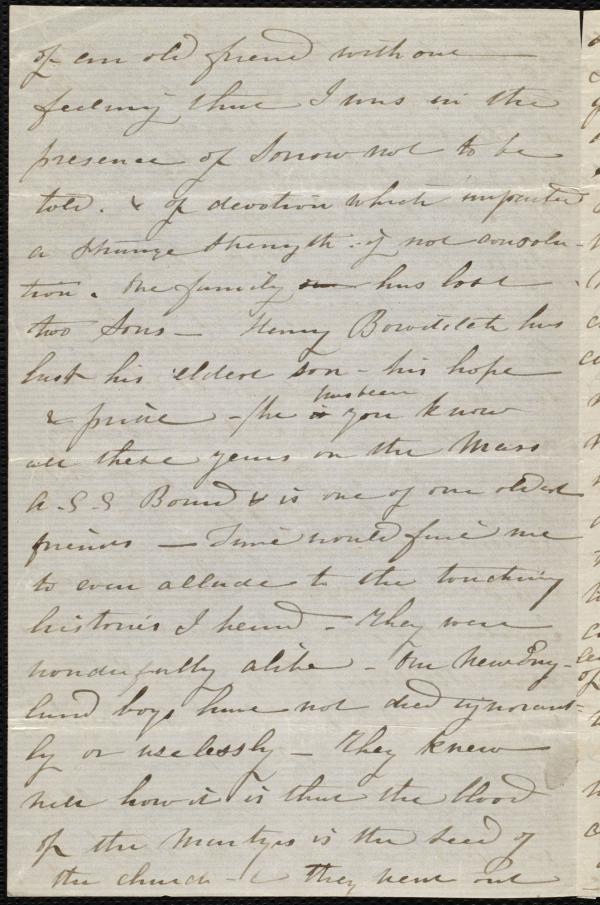 of an old friend without
feeling that I was in the
presence of Sorrow not to be
told. & of devotion which imparted
a strange strength. if not consola-
tion. One family has lost
two Sons — Henry Bowditch has
lost his eldest son - his hope
& pride - (he has been you know
all these years on the Mass
A. S. S Board & is one of our oldest
friends — Time would fail me
to even allude to the touching
histories I heard - They were
wonderfully alike - Our New Eng-
land boys have not died ignorant-
ly or uselessly - They knew
well how it is that the blood
of the Martyrs is the seed of
the church - & they went out